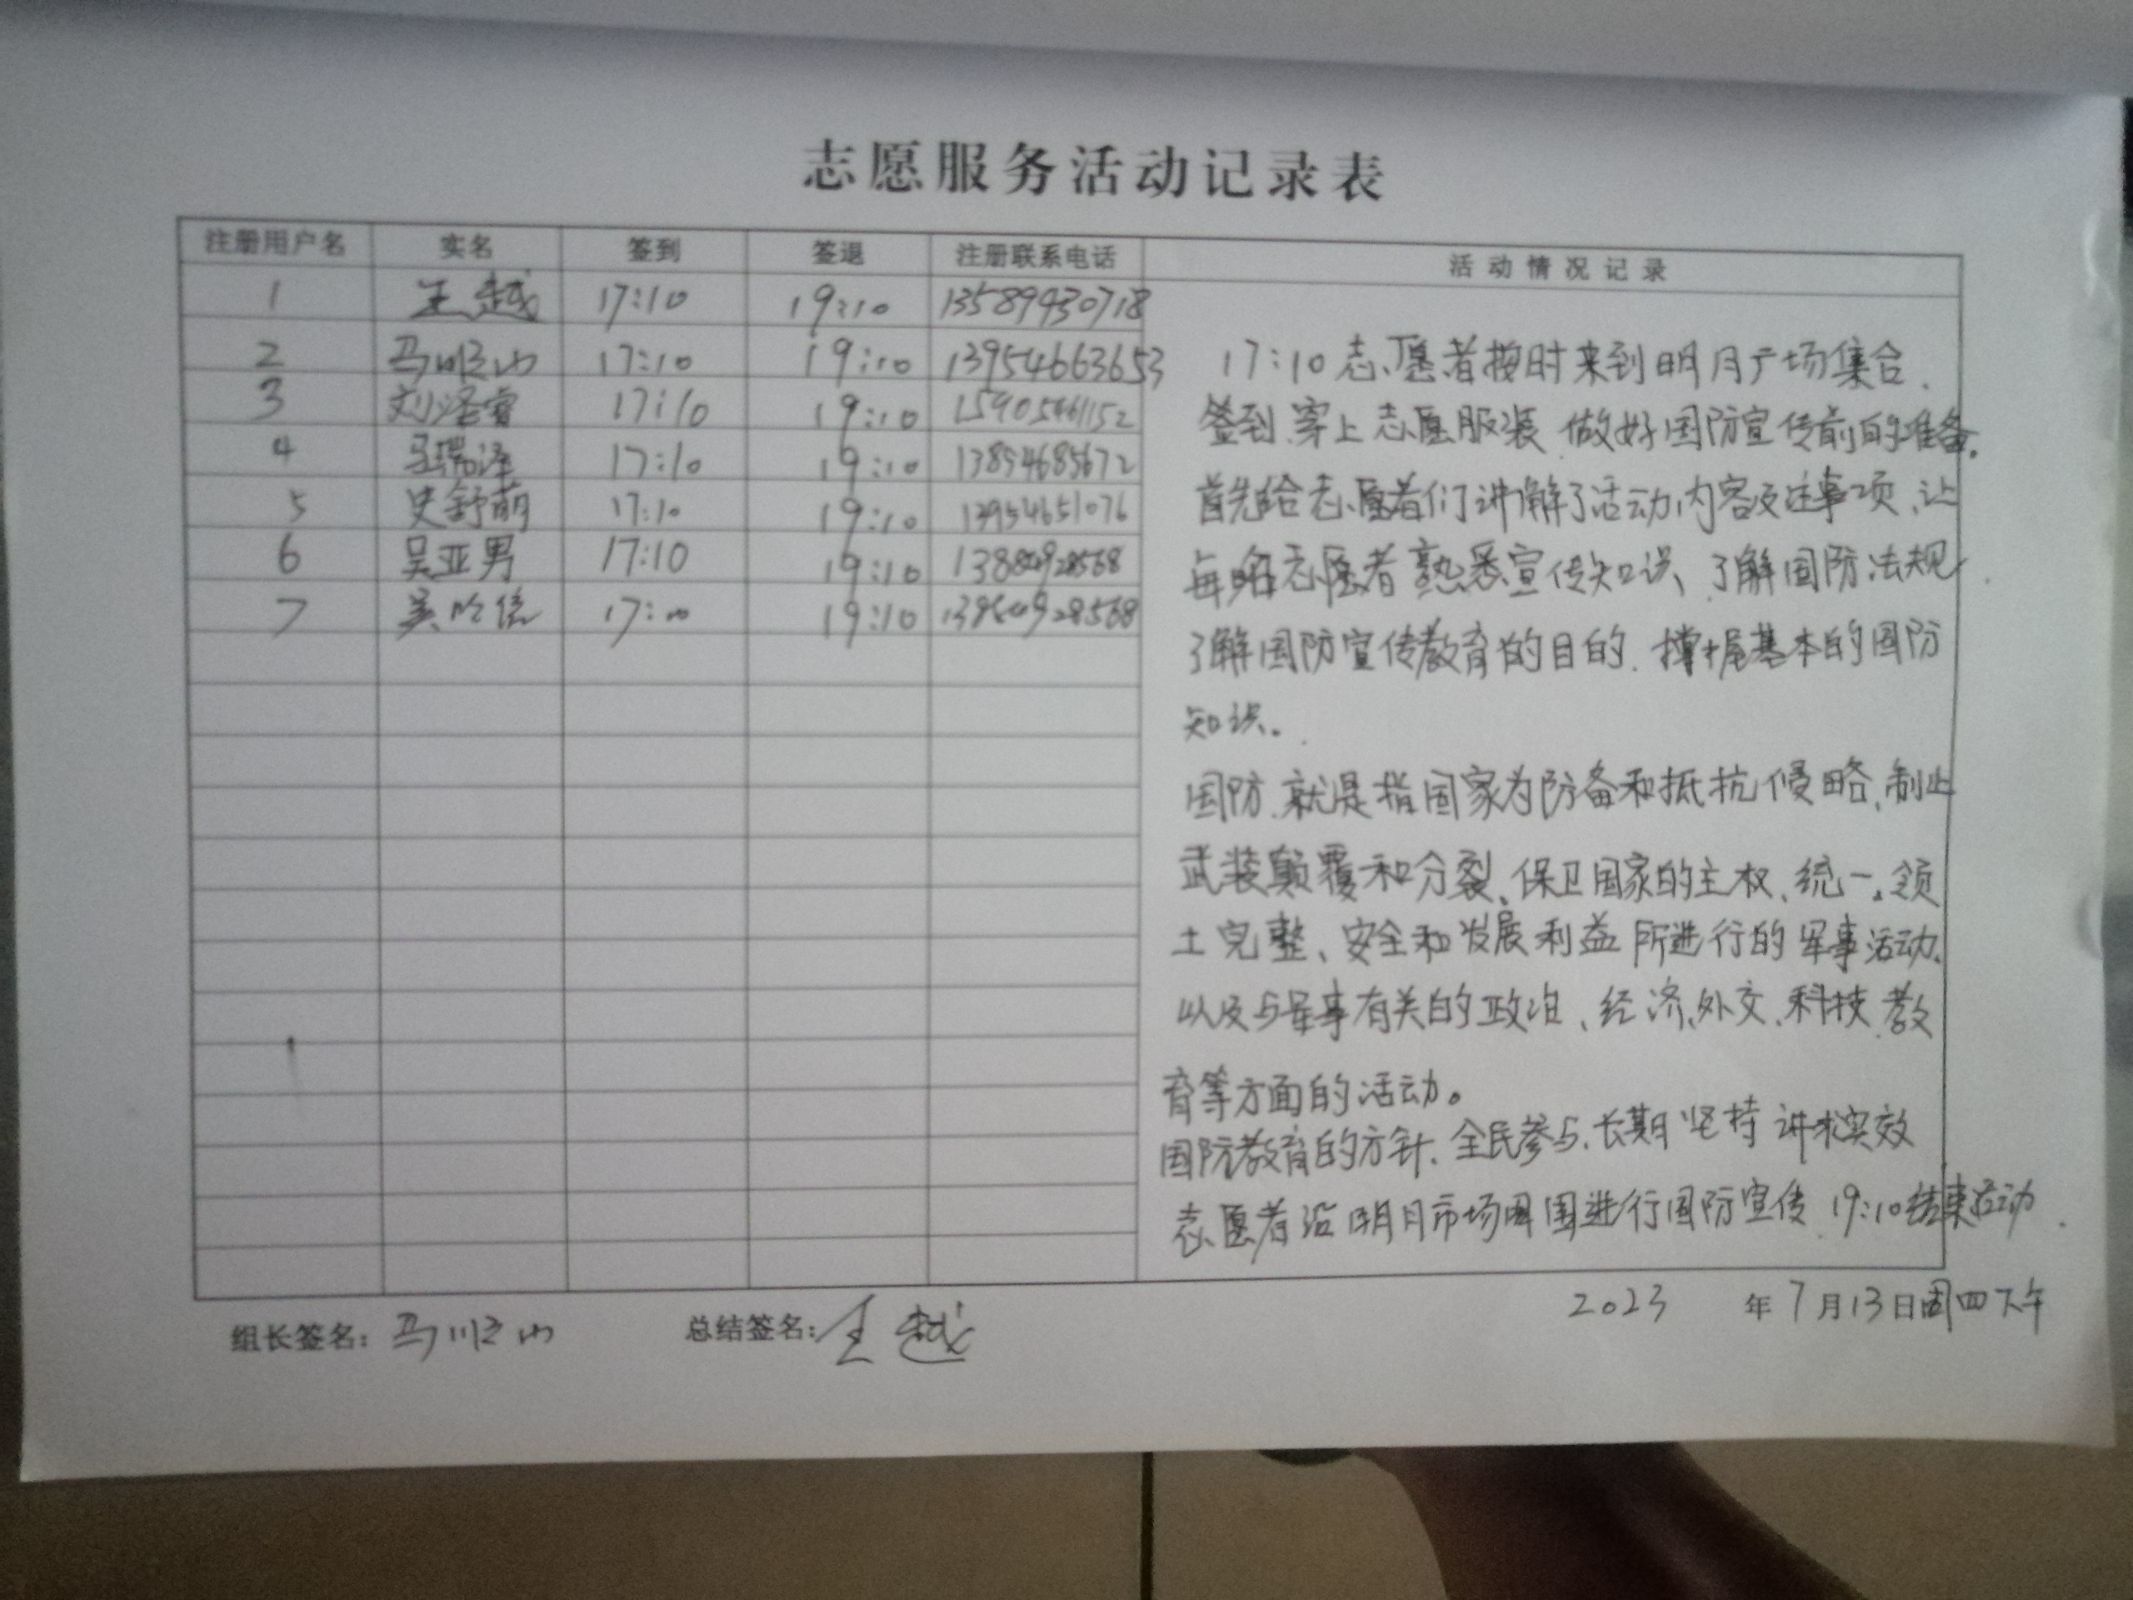 志愿服务活动记录表
注册用户名 实名 签到 签退 注册联系电话 活动情况记录
1 王越 17:10 19:10 13589430718
2 马顺山 17:10 19:10 13954663653
3 刘泽睿 17:10 19:10 15905461152
4 马瑞泽 17:10 19:10 13854685672
5 史舒萌 17:10 19:10 13954651076
6 吴亚男 17:10 19:10
7 17:10 19:10
17:10志愿者按时来到明月广场集合、
签到、穿上志愿服装、做好国防宣传前的准备。
首先给志愿者们讲解了活动内容及注事项、让
每名志愿者熟悉宣传知识、了解国防法规、
了解国防宣传教育的目的、掌握基本的国防
知识。
国防、就是指国家为防备和抵抗侵略、制止
武装颠覆和分裂、保卫国家的主权、统一、领
土完整、安全和发展利益所进行的军事活动、
以及与军事有关的政治、经济、外交、科技、教
育等方面的活动。
国防教育的方针、全民参与、长期坚持 讲求实效
志愿者沿明月市场周围进行国防宣传、19:10结束活动.
组长签名：马顺山 总结签名：王越 2023 年7月13日周四下午